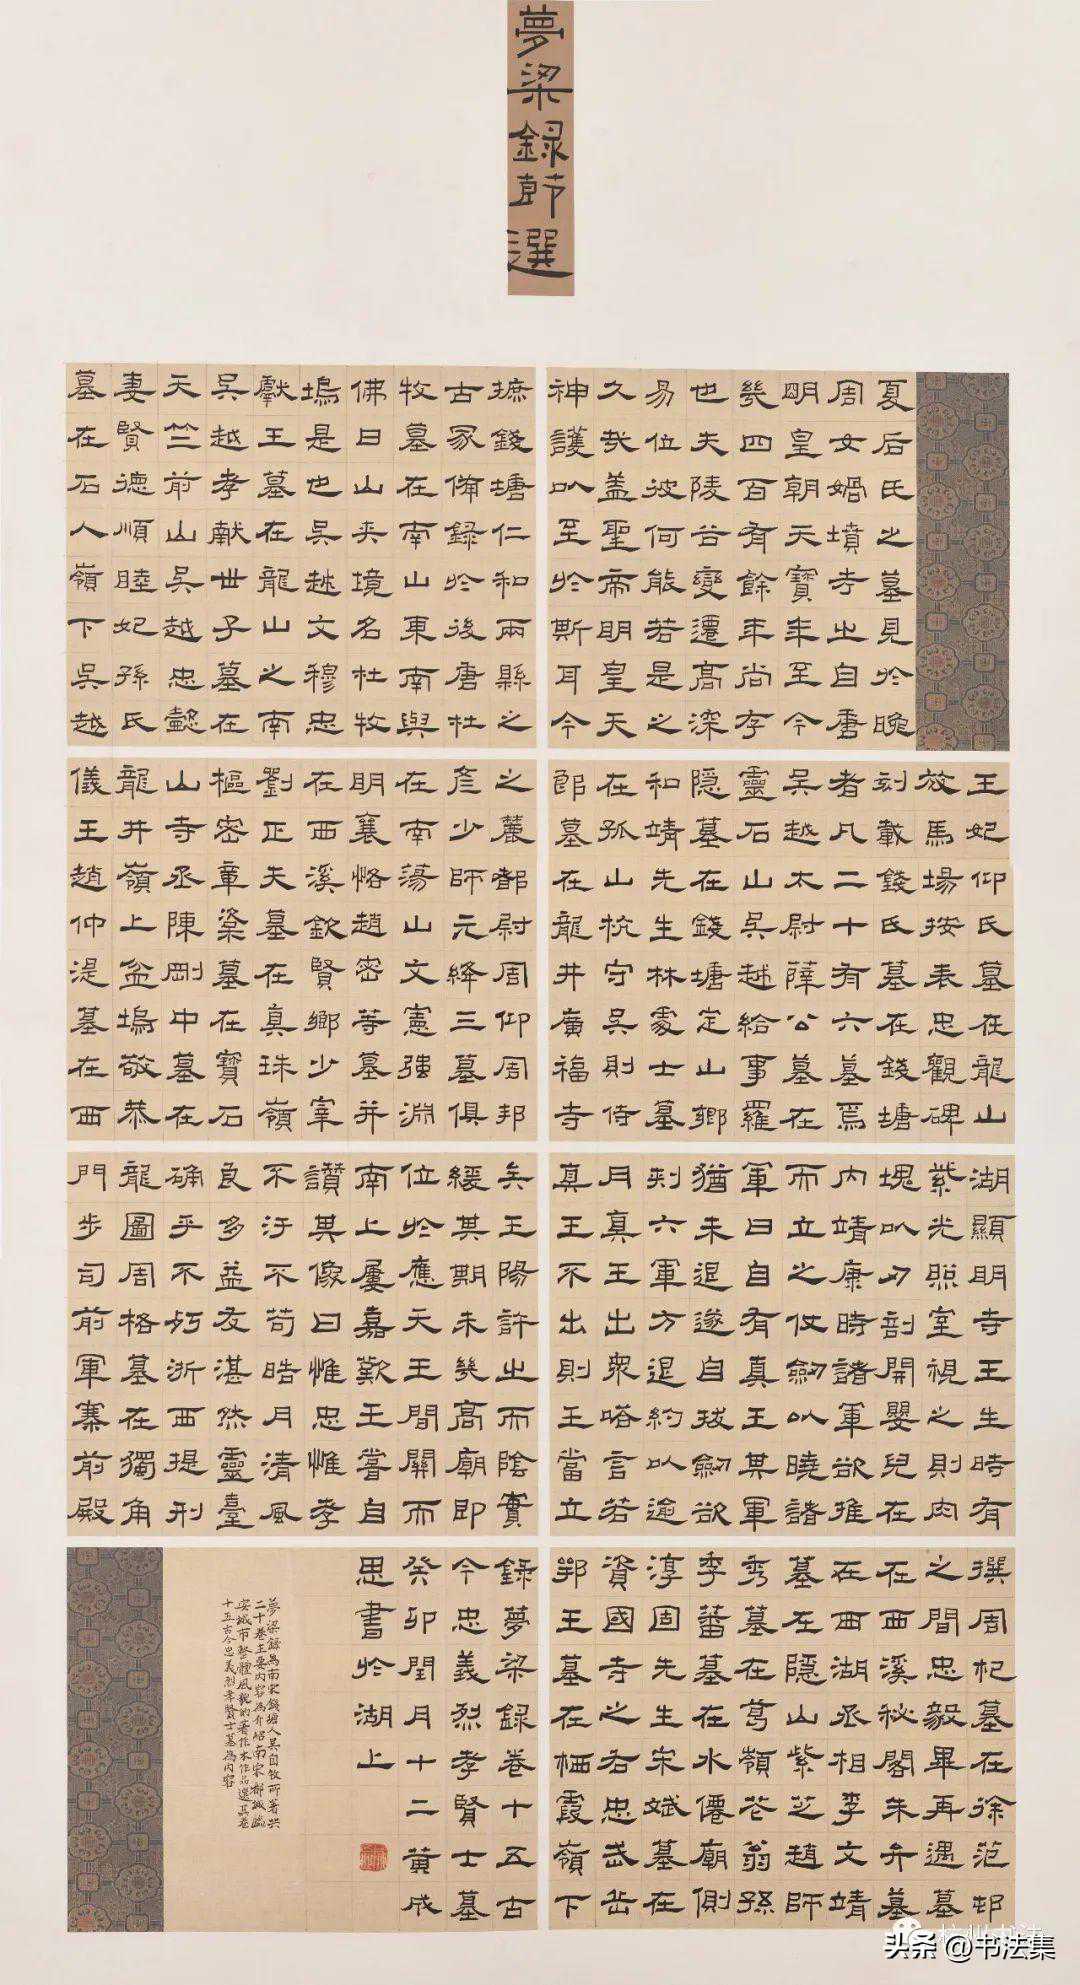 夢梁録節選
夏后氏之墓見於晼
周女媧墳寺之自唐
明皇朝天寶年至今
幾四百有餘年尚存
也夫陵谷變遷高深
易位彼何能若是之
久哉蓋聖帝明皇天
神護以至於斯耳今
摭錢塘仁和兩縣之
古冢備錄於後唐杜
牧墓在南山東南與
佛日山夾境名杜牧
塢是也吳越文穆忠
獻王墓在龍山之南
吳越孝獻世子墓在
天竺前山吳越忠懿
妻賢德順睦妃孫氏
墓在石人嶺下吳越
王妃仰氏墓在龍山
放馬場按表忠觀碑
刻載錢氏墓在錢塘
者凡二十有六墓焉
吳越太尉薛公墓在
靈石山吳越給事羅
隱墓在錢塘定山鄉
和靖先生林處士墓
在孤山杭守吳則侍
郎墓在龍井廣福寺
之麓都尉周仰周邦
彥少師元絳三墓俱
在南蕩山文憲強淵
明襄恪趙密等墓并
在西溪欽賢鄉少宰
劉正夫墓在真珠嶺
樞密章楶墓在寶石
山寺丞陳剛中墓在
龍井嶺上盆塢敬恭
儀王趙仲湜墓在西
湖顯明寺王生時有
紫光照室視之則肉
塊以刀剖開嬰兒在
內靖康時諸軍欲推
而立之仗劍以曉諸
軍曰自有真王其軍
猶未退遂自拔劍欲
刺六軍方退約以逾
月真王出眾咯言若
真王不出則王當立
矣王陽許之而陰實
緩其期未幾高廟即
位於應天王間關而
南上屢嘉歎王嘗自
讚其像曰惟忠惟孝
不汙不苟皓月清風
良多益友湛然靈臺
確乎不朽浙西提刑
龍圖周格墓在獨角
門步司前軍寨前殿
撰周杞墓在徐范邨
之間忠毅畢再遇墓
在西溪秘閣朱弁墓
在西湖丞相李文靖
墓在隱山紫芝趙師
秀墓在葛嶺花翁孫
季蕃墓在水僊廟側
淳固先生宋斌墓在
資國寺之右忠武岳
鄂王墓在栖霞嶺下
錄夢梁録卷十五古
今忠義烈孝賢士墓
癸卯閏月十二黃成
思書於湖上
夢梁錄為南宋錢塘人吳自牧所著共
二十卷主要內容為介紹南宋都城臨
安城市整體風貌的著作本作品選其卷
十五古今忠義烈孝賢士墓為內容
头条 @书法集